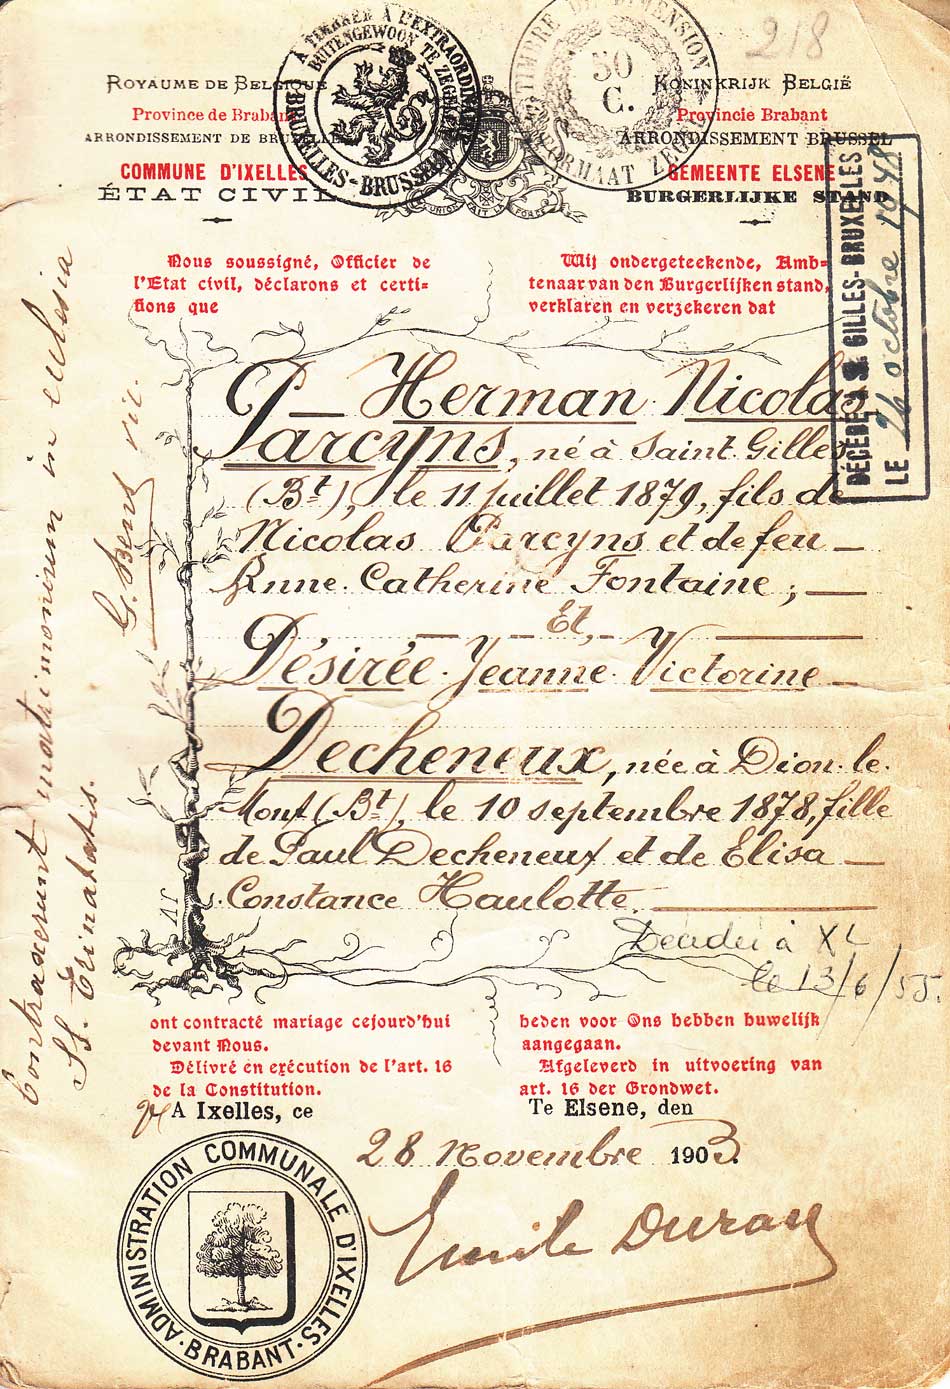 218
A TIMBRER À L'EXTRAORDINAIRE
BUITENGEWOON TE ZEGELEN
BRUXELLES - BRUSSEL
TIMBRE DE DIMENSION
50
C.
FORMAAT ZEGEL
ROYAUME DE BELGIQUE
Province de Brabant
ARRONDISSEMENT DE BRUXELLES
COMMUNE D'IXELLES
ÉTAT CIVIL
KONINKRIJK BELGIË
Provincie Brabant
ARRONDISSEMENT BRUSSEL
GEMEENTE ELSENE
BURGERLIJKE STAND
L'UNION FAIT LA FORCE
DÉCÉDÉ À St GILLES-BRUXELLES
LE 26 octobre 1948
Nous soussigné, Officier de
l'Etat civil, déclarons et certi-
fions que
Wij ondergeteekende, Amb-
tenaar van den Burgerlijken stand,
verklaren en verzekeren dat
Herman Nicolas
Parcyns, né à Saint Gilles
(Bt), le 11 juillet 1879, fils de
Nicolas Parcyns et de feu
Anne Catherine Fontaine;
Et,
Désirée Jeanne Victorine
Decheneux, née à Dion-le-
Mont (Bt), le 10 septembre 1878, fille
de Paul Decheneux et de Elisa
Constance Haulotte.
à XL
le 13/6/55.
Contraxerunt matrimonium in ecclesia
SS. Trinitatis.
G. vic.
ont contracté mariage cejourd'hui
devant Nous.
Délivré en exécution de l'art. 16
de la Constitution.
A Ixelles, ce
heden voor Ons hebben huwelijk
aangegaan.
Afgeleverd in uitvoering van
art. 16 der Grondwet.
Te Elsene, den
28 Novembre 1903.
Emile Duray
ADMINISTRATION COMMUNALE D'IXELLES
BRABANT